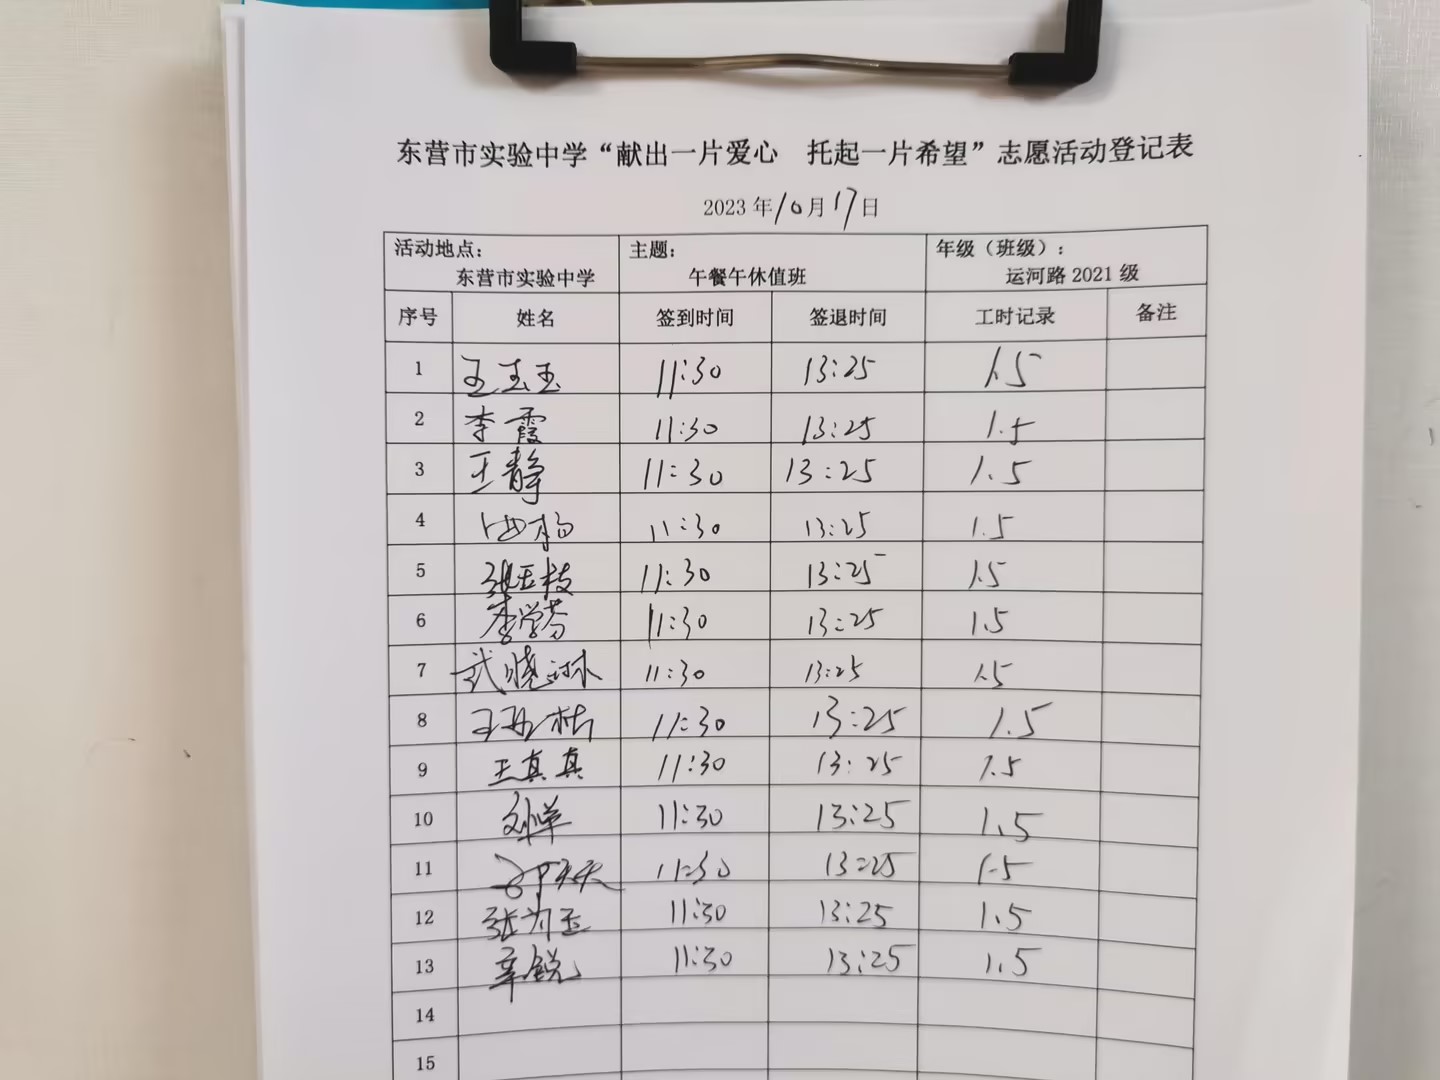 东营市实验中学“献出一片爱心 托起一片希望”志愿活动登记表
2023年10月17日
活动地点： 主题： 年级（班级）：
东营市实验中学 午餐午休值班 运河路2021级
序号 姓名 签到时间 签退时间 工时记录 备注
1 王玉玉 11:30 13:25 1.5
2 李霞 11:30 13:25 1.5
3 王静 11:30 13:25 1.5
4 11:30 13:25 1.5
5 张玉枝 11:30 13:25 1.5
6 李学芬 11:30 13:25 1.5
7 武晓琳 11:30 13:25 1.5
8 王 11:30 13:25 1.5
9 王真真 11:30 13:25 1.5
10 11:30 13:25 1.5
11 11:30 13:25 1.5
12 张为玉 11:30 13:25 1.5
13 辛锐 11:30 13:25 1.5
14
15